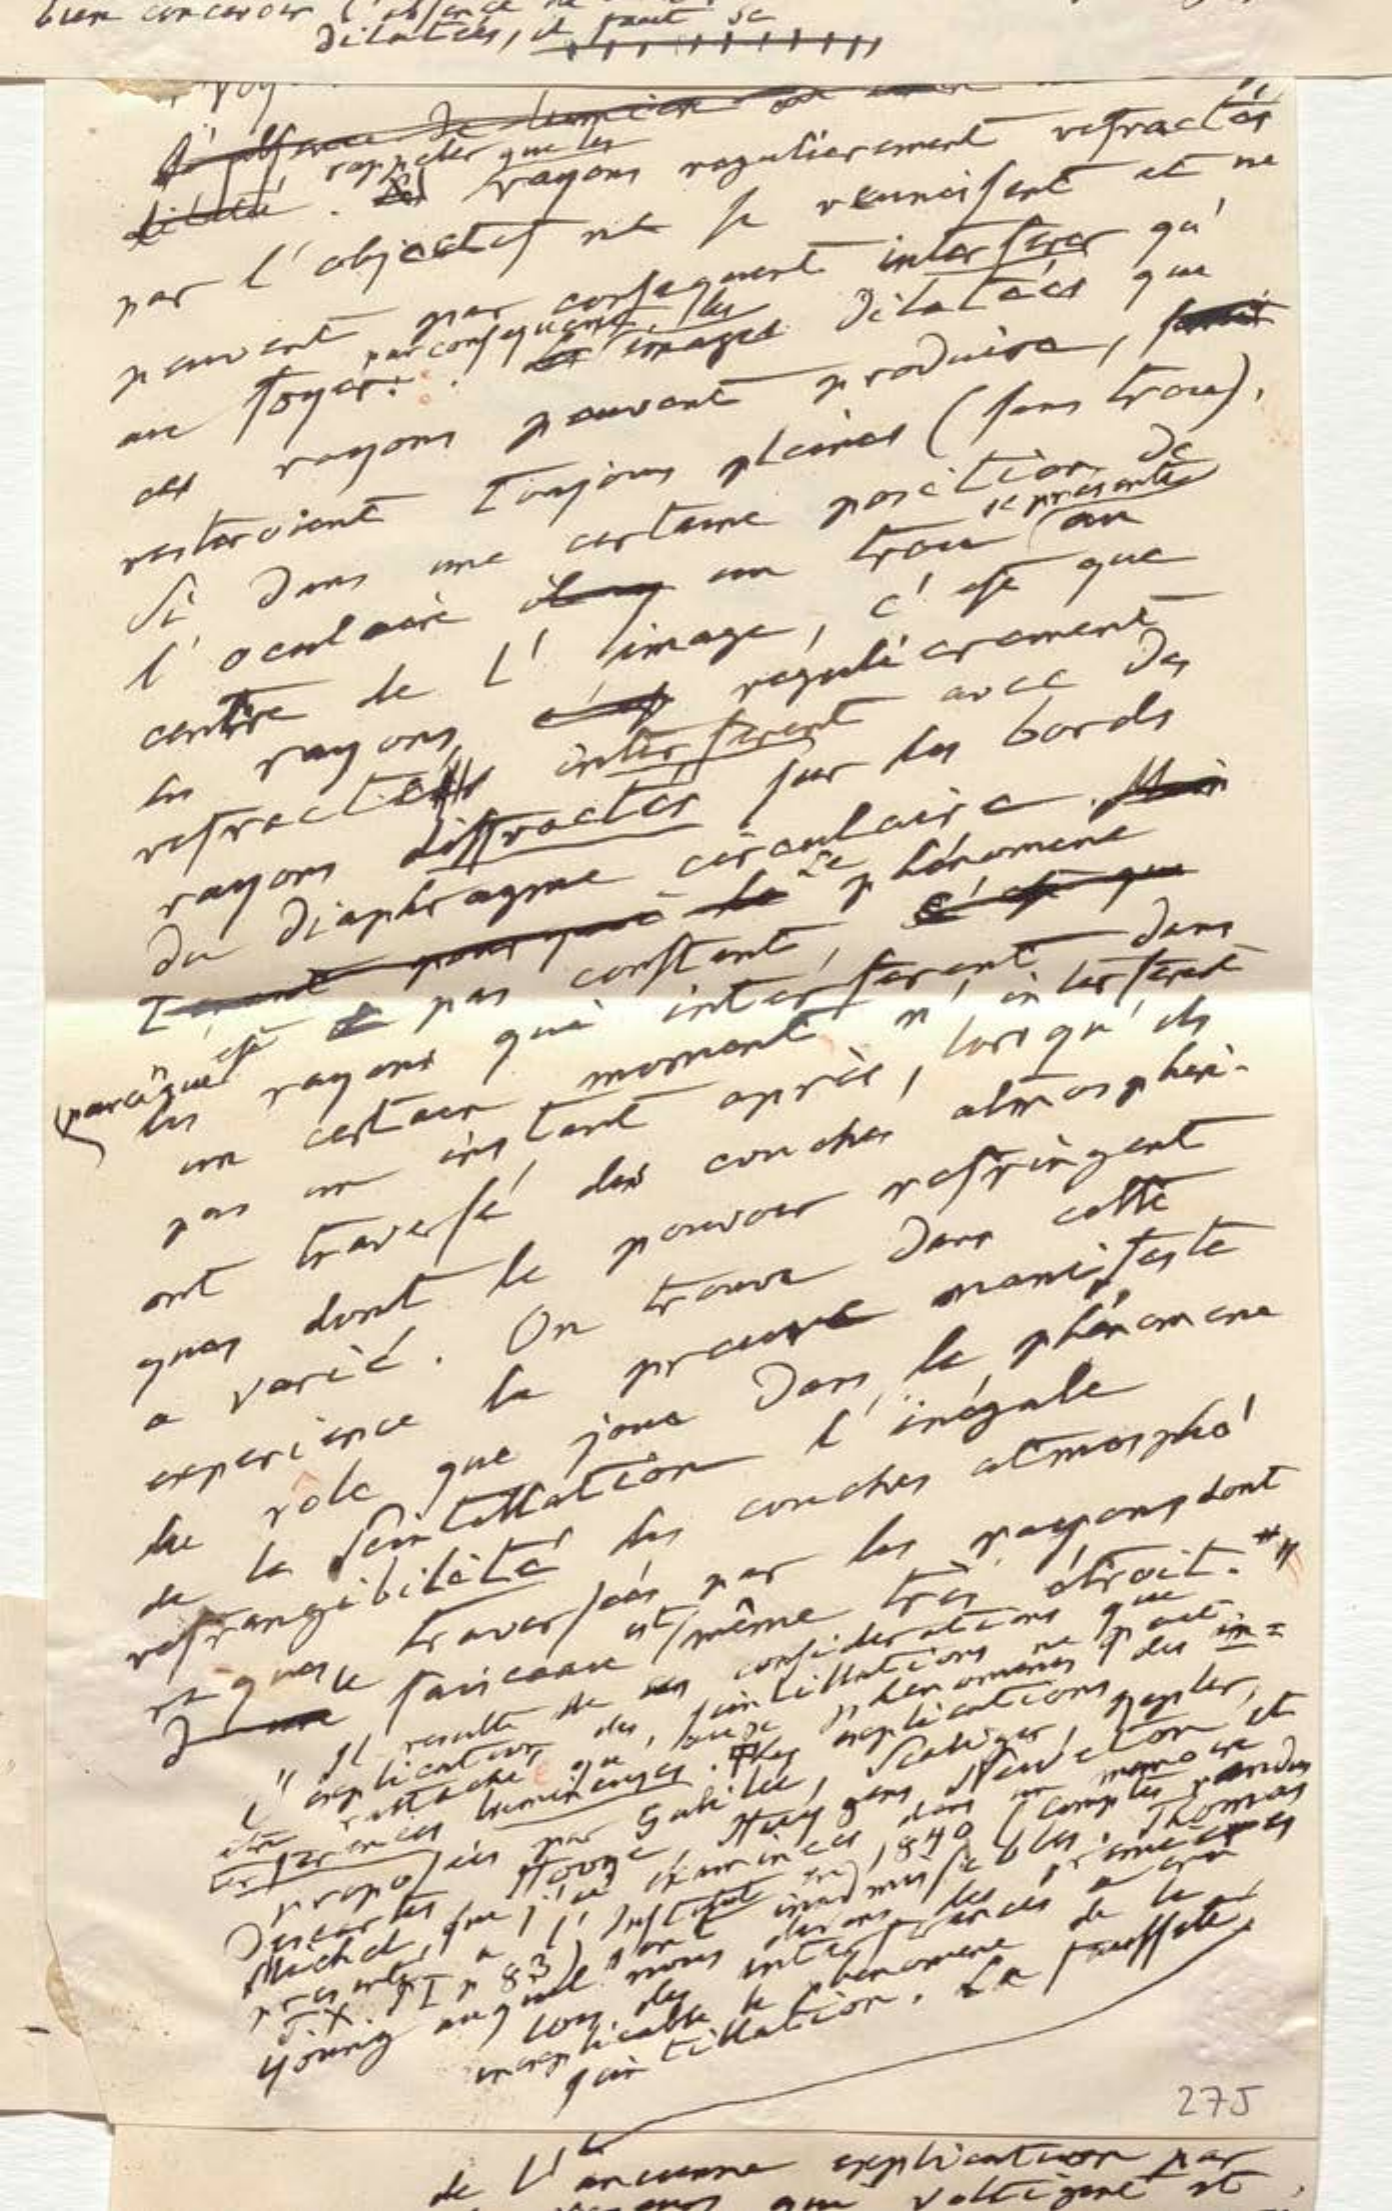 bien concevoir l'absence
dilatées, il faut se
l'absence de lumière
dilaté. rappeler que les
rayons regulierement refractés
par l'objectif ne se reunissent et ne
peuvent par consequent interferer qu'
au foyer. par consequent, les images dilatées que
ces rayons peuvent produire,
resteroient toujours pleines (sans trou).
Si dans une certaine position de
l'oculaire un trou se presente au
centre de l'image, c'est que
les rayons regulièrement
refractés interferent avec des
rayons diffractés sur les bords
du diaphragme circulaire. Mais
Le phénomene
n'est pas constant, c'est que
parceque les rayons qui interferent dans
un certain moment n'interferent
pas un instant après, lorsqu'ils
ont traversé des couches atmospheri-
ques dont le pouvoir refringent
a varié. On trouve dans cette
experience la preuve manifeste
du rôle que joue dans le phénomene
de la scintillation l'inégale
refrangibilité des couches atmosphé
riques traversées par les rayons dont
le faisceau est même très étroit."
"Il resulte de ces considerations que
l'explication des scintillations ne peut
être rattachée qu'aux phénomènes des in=
terferences lumineuses. Les explications
proposées par Galilée, Scaliger, Kepler,
Descartes, Hooke, Huygens, Newton et
Michel, que j'ai examinées dans un memoire
presenté à l'Institut en 1840 (Comptes rendus
T. X. p 83) sont inadmissibles. Thomas
Young auquel nous devons les premieres
lois des interferences a cru
inexplicable le phénomene de la
scintillation. La fausseté
275
de l'ancienne explication par
qui voltigent et